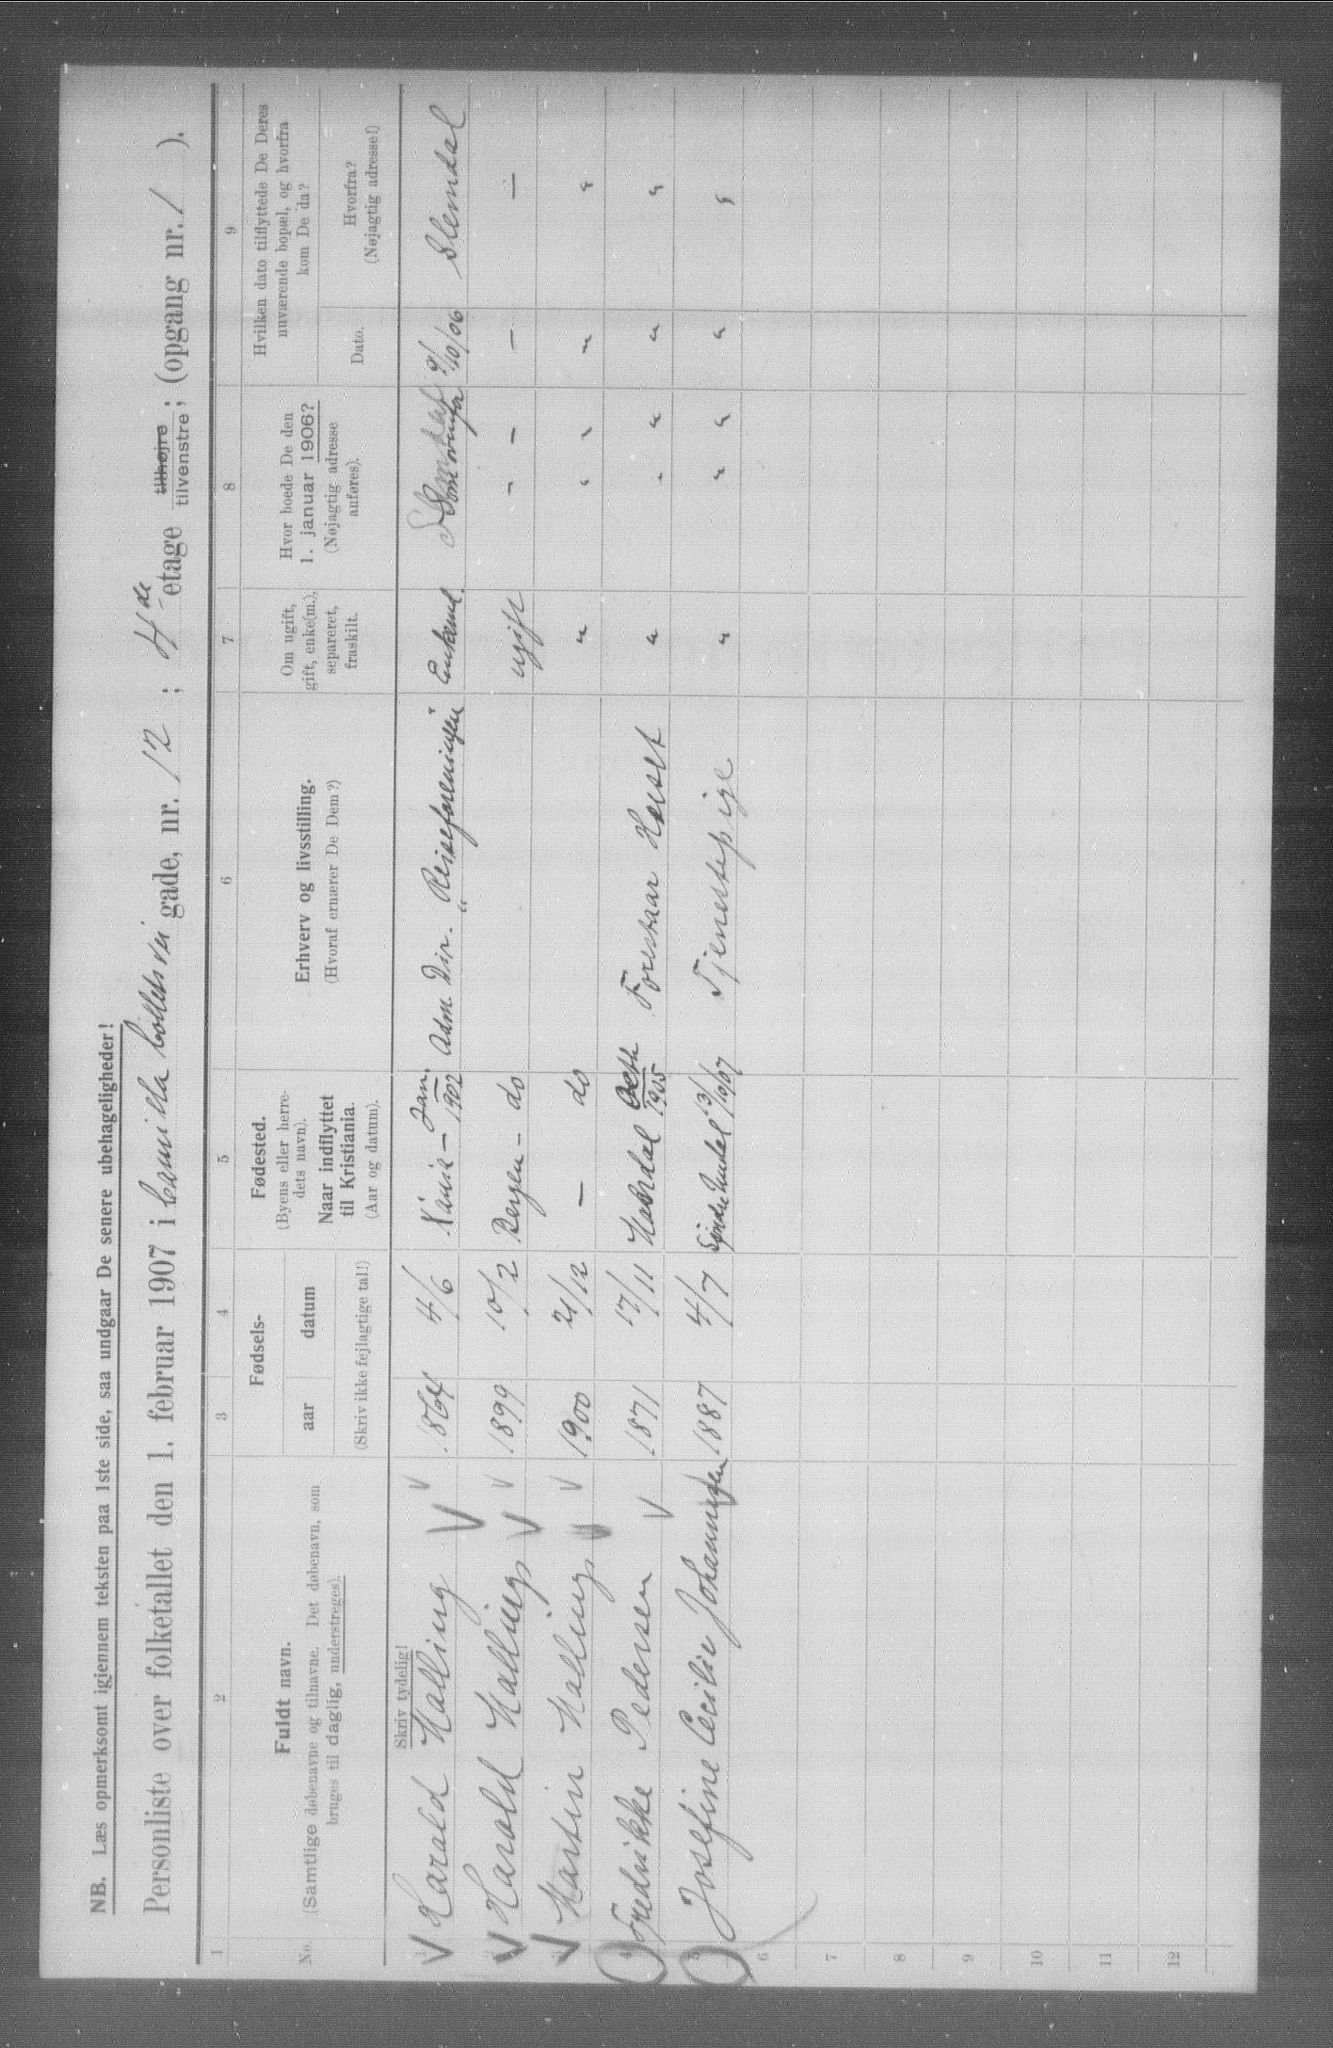 NB. Læs opmerksomt igjennem teksten paa 1ste side, saa undgaar De senere ubehageligheder!
Personliste over folketallet den 1. februar 1907 i Camilla Colletts vei gade, nr. 12 ; 4de etage tilhøjre tilvenstre ; (opgang nr. 1 ).
1 2 3 4 5 6 7 8 9
No.
Fuldt navn.
(Samtlige døbenavne og tilnavne. Det døbenavn, som
bruges til daglig, understreges).
Fødsels-
aar datum
(Skriv ikke fejlagtige tal!)
Fødested.
(Byens eller herre-
dets navn).
Naar indflyttet
til Kristiania.
(Aar og datum).
Erhverv og livsstilling.
(Hvoraf ernærer De Dem?)
Om ugift,
gift, enke(m.),
separeret,
fraskilt.
Hvor boede De den
1. januar 1906?
(Nøjagtig adresse
anføres).
Hvilken dato tilflyttede De Deres
nuværende bopæl, og hvorfra
kom De da?
Dato.
Hvorfra?
(Nøjagtig adresse!)
Skriv tydelig!
1 Harald Halling 1864 4/6 Jan. 1902 Adm. Dir. "Reiseforeningen" Enkem. 9/10/06 Slemdal
2 Harald Halling 1899 10/2 Bergen - do ugift - - - -
3 Martin Halling 1900 21/12 - do " " " " "
4 Fredrikke Pedersen 1871 17/11 1905 Forestaar Huset " " " " "
5 Josefine Cecilie Johannessen 1887 4/7 Tjenestepige " " " " "
6
7
8
9
10
11
12